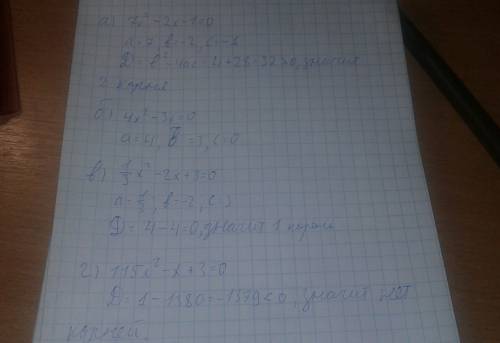 а) 7x² - 2x - 1 = 0
a = 7, b = -2, c = -1
D = b² - 4ac = 4 + 28 = 32 > 0, значит
2 корня
б) 4x² - 3x = 0
a = 4, b = 3, c = 0
в) 1/3 x² - 2x + 3 = 0
a = 1/3, b = -2, c 3
D = 4 - 4 = 0, значит 1 корень
г) 115x² - x + 3 = 0
D = 1 - 1380 = -1379 < 0, значит нет
корней.